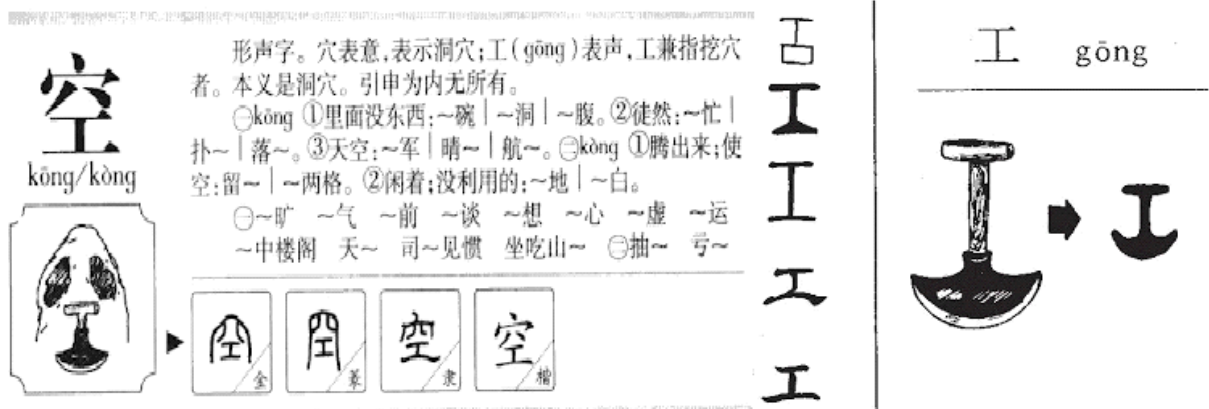 空
kōng/kòng
形声字。穴表意,表示洞穴;工(gōng)表声,工兼指挖穴
者。本义是洞穴。引申为内无所有。
㊀kōng ①里面没东西:~碗|~洞|~腹。②徒然:~忙|
扑~|落~。③天空:~军|晴~|航~。㊁kòng ①腾出来;使
空:留~|~两格。②闲着;没利用的:~地|~白。
㊀~旷 ~气 ~前 ~谈 ~想 ~心 ~虚 ~运
~中楼阁 天~ 司~见惯 坐吃山~ ㊁抽~ 亏~
空 金
空 篆
空 隶
空 楷
工
工
工
工
工 gōng